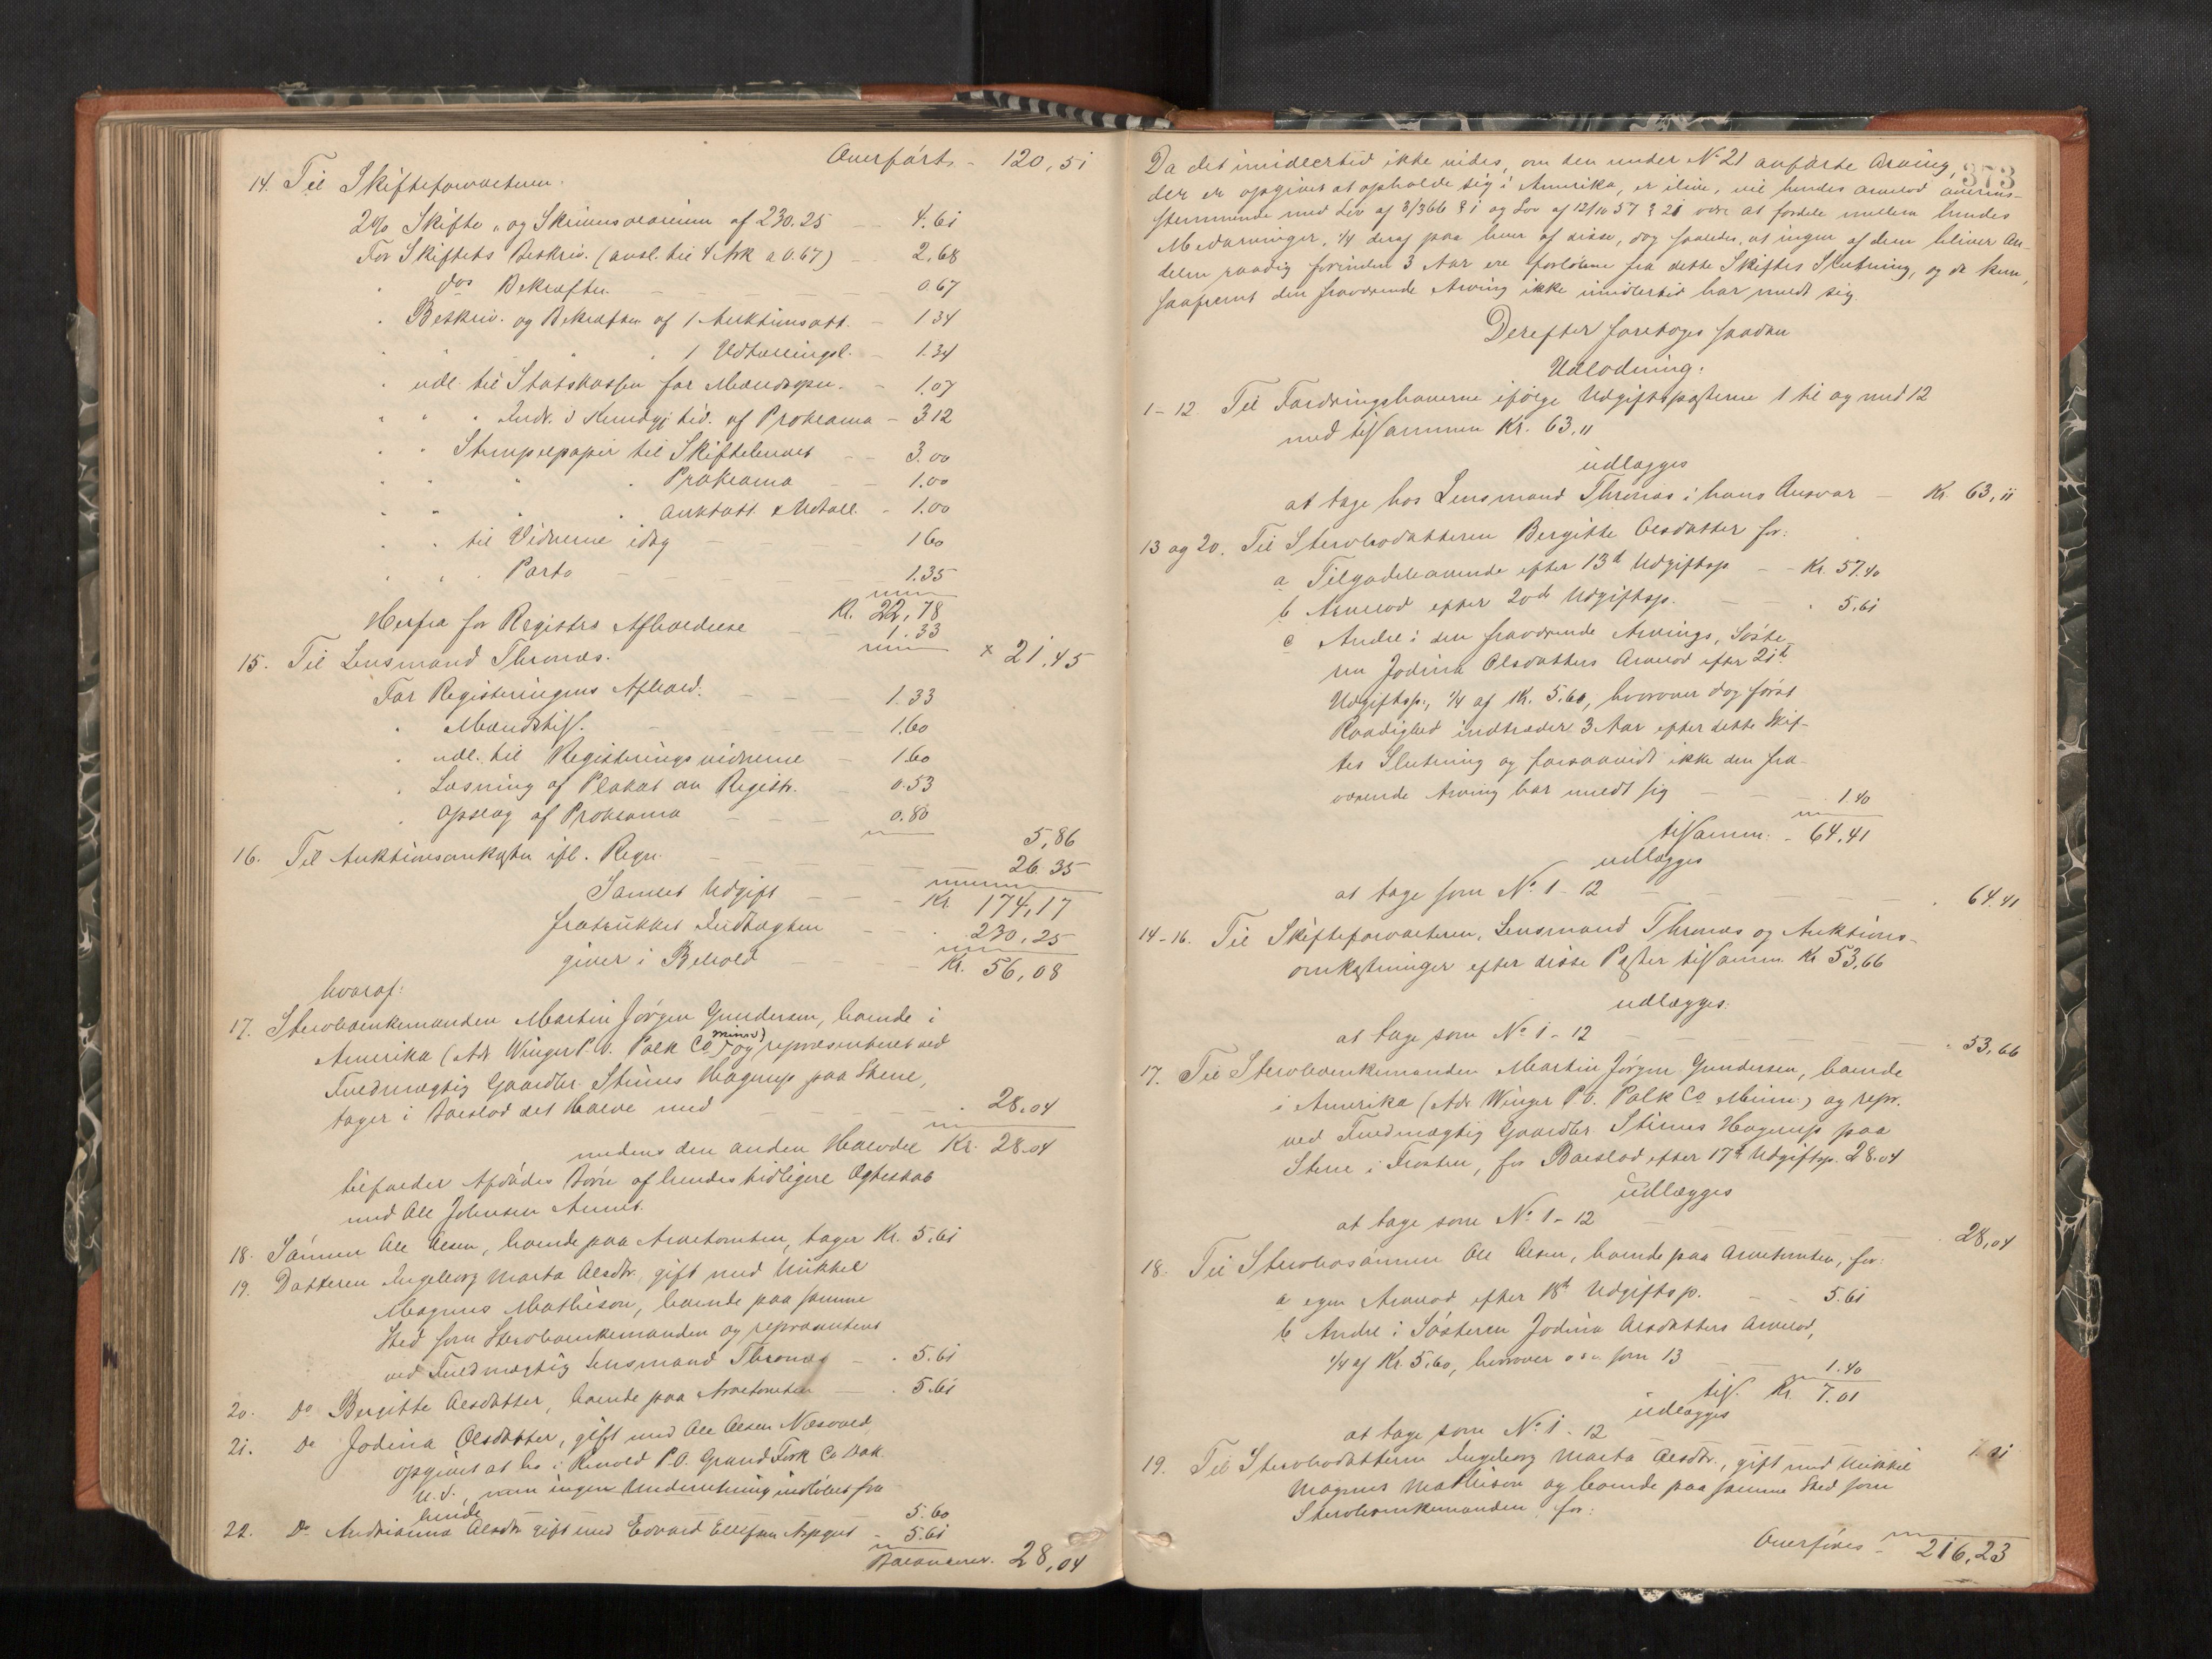 Overført - 120,51
14. Til Skifteforvalteren:
2% Skifte- og Skriversalarium af 230.25 - 4.61
For Skiftets Beskriv. (ansl. til 4 Ark a 0.67) - 2.68
" dos Bekræften - 0.67
" Beskriv. og Bekræften af 1 Auktionsatt. - 1.34
" " " " 1 Udtællingsl. - 1.34
" udl. til Statskassen for Mændsopn. - 1.07
" " " Indr. i Kundgj.tid. af Proklama - 3.12
" " Stempelpapir til Skiftebrevet - 3.00
" " " " Proklama - 1.00
" " " " Auktatt. & Udtæll. - 1.00
" " til Vidnerne idag - 1.60
" " " Porto - 1.35
Kr. 22,78
Herfra for Registrs Afholdelse - 1.33
× 21,45
15. Til Lensmand Thronæs.
For Registeringens Afhold. - 1.33
" Mændstils. - 1.60
" udl. til Registeringsvidnerne - 1.60
" Læsning af Plakat om Registr. - 0.53
" Opslag af Proklama - 0.80
5,86
16. Til Auktionsomkostn. ifl. Regn. - 26.35
Samlet Udgift - Kr. 174,17
fratrukket Indtægten - 230,25
giver i Behold - Kr. 56,08
hvoraf:
17. Stervboenkemanden Martin Jørgen Gundersen, boende i
Amerika (Adr. Winger P.O. Polk Co Minn.) og repræsenteret ved
Fuldmægtig Gaardbr. Stinus Hagerup paa Stene,
tager i Boeslod det Halve med - 28.04
medens den anden Halvdel Kr. 28.04
tilfalder Afdødes Børn af hendes tidligere Ægteskab
med Ole Johnsen
18. Sønnen Ole Olsen, boende paa Arvetomten, tager Kr. 5.61
19. Datteren Ingeborg Marta Olsdtr., gift med Mikkel
Magnus Mathison, boende paa samme
Sted som Stervboenkemanden og repræsenteret
ved Fuldmægtig Lensmand Thronæs - " 5.61
20. Do Bergitte Olsdatter, boende paa Arvetomten - " 5.61
21. Do Jodina Olsdatter, gift med Ole Olsen Næsvold,
opgivet at bo i Renold P.O. Grand Fork Co Dak.
U.S., men ingen Underretning indløbet fra
hende 5.60
22. Do Andrianna Olsdtr. gift med Edvard Ellefsen - 5.61
Balancerer. 28,04
373
Da det imidlertid ikke vides, om den under No 21 anførte Arving,
der er opgivet at opholde sig i Amerika, er ilive, vil hendes Arvelod overens-
stemmende med Lov af 3/3 66 § 1 og Lov af 12/10 57 § 21 være at fordele mellem hendes
Medarvinger, 1/4 deraf paa hver af disse, dog saaledes, at ingen af dem bliver An-
delen raadig forinden 3 Aar ere forløbne fra dette Skiftes Slutning, og da kun,
saafremt den fraværende Arving ikke imidlertid har meldt sig.
Derefter foretoges saadan
Udlodning:
1-12. Til Fordringshaverne ifølge Udgiftsposterne 1 til og med 12
med tilsammen Kr. 63.11
udlægges
at tage hos Lensmand Thronæs i hans Ansvar - Kr. 63,11
13 og 20. Til Stervbodatteren Bergitte Olsdatter for:
a Tilgodehavende efter 13de Udgiftsp. - Kr. 57.40
b Arvelod efter 20de Udgiftsp. - " 5.61
c Andel i den fraværende Arvings, Søste-
ren Jodina Olsdatters Arvelod efter 21de
Udgiftsp., 1/4 af Kr. 5.60, hvorover dog først
Raadighed indtræder 3 Aar efter dette Skif-
tes Slutning og forsaavidt ikke den fra-
værende Arving har meldt sig - 1.40
tilsamm. - 64,41
udlægges
at tage som No 1-12 - " 64.41
14-16. Til Skifteforvalteren, Lensmand Thronæs og Auktions-
omkostninger efter disse Poster tilsamm. Kr 53,66
udlægges:
at tage som No 1-12 - " 53,66
17. Til Stervboenkemanden Martin Jørgen Gundersen, boende
i Amerika (Adr. Winger P.O. Polk Co Minn.) og repr.
ved Fuldmægtig Gaardbr. Stinus Hagerup paa
Stene i Frosten, for Boeslod efter 17de Udgiftsp. 28.04
udlægges
at tage som No 1-12 - 28,04
18. Til Stervbosønnen Ole Olsen, boende paa Arvetomten, for:
a egen Arvelod efter 18de Udgiftsp. - 5.61
b Andel i Søsteren Jodina Olsdatters Arvelod,
1/4 af Kr. 5.60, hvorover o.s.v. som 13 - 1.40
tils. Kr. 7.01
udlægges
at tage som No 1-12 - 7.01
19. Til Stervbodatteren Ingeborg Marta Olsdtr., gift med Mikkel
Magnus Mathison og boende paa samme Sted som
Stervboenkemanden, for:
Overføres - 216,23